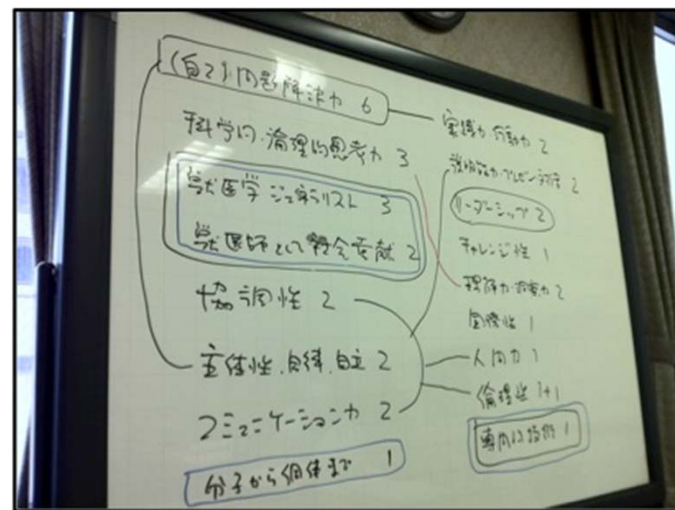 (自己)問題解決力 6
科学的・論理的思考力 3
獣医学ジェネラリスト 3
獣医師として社会貢献 2
協調性 2
主体性、自律、自立 2
コミュニケーション力 2
分子から個体まで 1
実践力・行動力 2
説明能力・プレゼン 2
リーダーシップ 2
チャレンジ性 1
理解力・ 2
国際性 1
人間力 1
倫理性 1+1
専門的技術 1